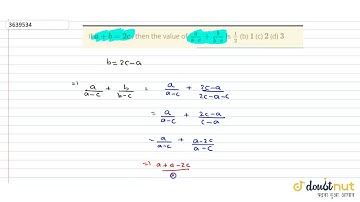 3639534
If a + b = 2c, then the value of a/(a-c) + b/(b-c) is 1/2 (b) 1 (c) 2 (d) 3
b = 2c-a
=) a/(a-c) + b/(b-c) = a/(a-c) + (2c-a)/(2c-a-c)
= a/(a-c) + (2c-a)/(c-a)
- a/(a-c) + (a-2c)/(a-c)
=) a+a-2c
doubtnut